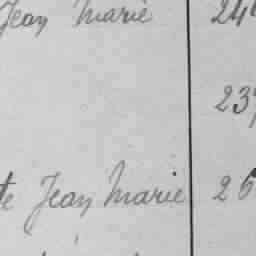 Jean Marie 24
23
te Jean Marie 26